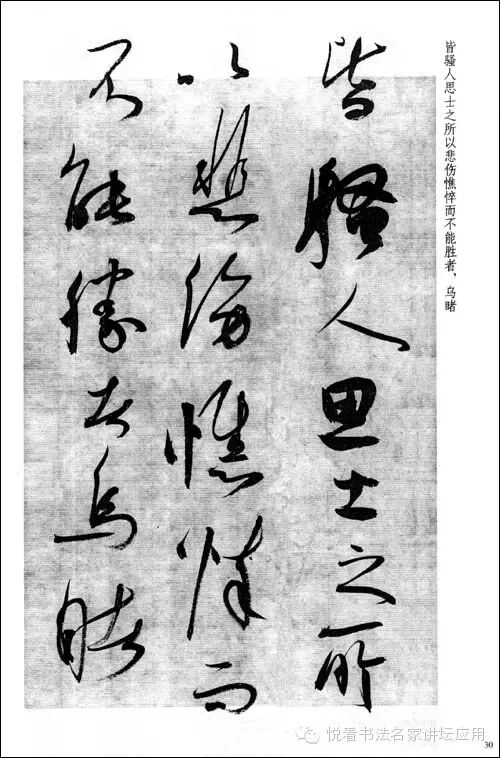 皆骚人思士之所以悲伤憔悴而不能胜者，乌睹
皆騷人思士之所
以悲傷憔悴而
不能勝者烏睹
悦看书法名家讲坛应用
30